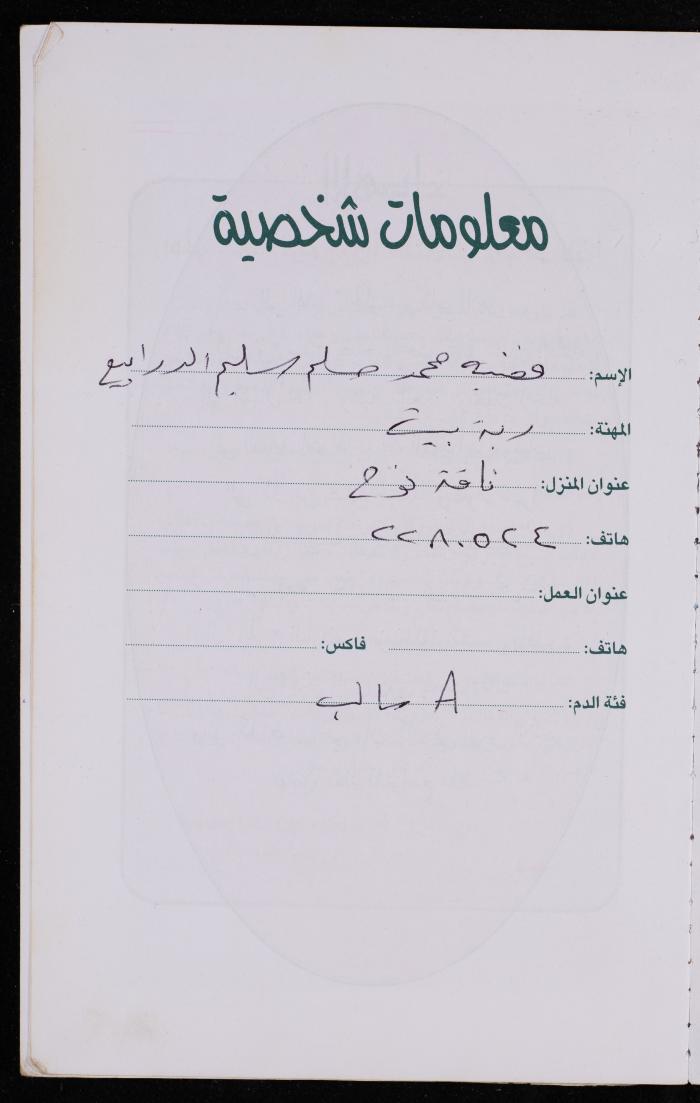 معلومات شخصية
الإسم: فضيه محمد سلم سليم الدرابيع
المهنة: ربة بيت
عنوان المنزل: ناقة نوح
هاتف: ٢٢٨٠٥٢٤
عنوان العمل:
هاتف: فاكس:
فئة الدم: A سالب